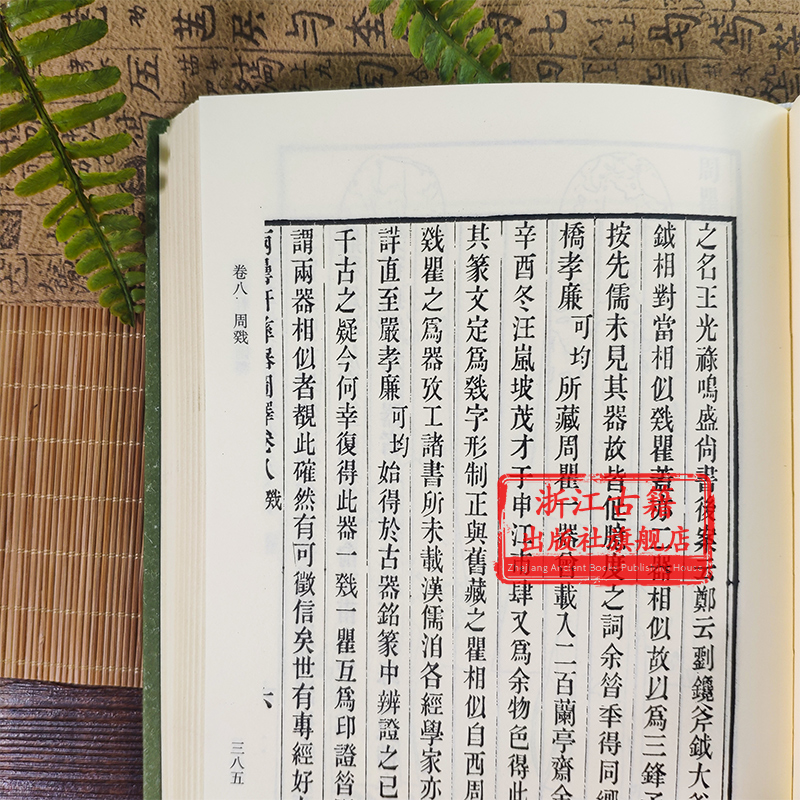 之名王光祿鳴盛尙書後案云鄭云劉鑱斧鉞大
鉞相對當相似戣瞿蓋亦二器相似故以爲三鋒矛
按先儒未見其器故皆作臆度之詞余昝秊得同鄉
橋孝廉可均所藏周瞿一器曾載入二百蘭亭齋金
辛酉冬汪嵐坡茂才于申江市肆又爲余物色得此
其篆文定爲戣字形制正與舊藏之瞿相似自西周
戣瞿之爲器攷工諸書所未載漢儒洎各經學家亦
許直至嚴孝廉可均始得於古器銘篆中辨證之已
千古之疑今何幸復得此器一戣一瞿互爲印證昝
謂兩器相似者覩此確然有可徵信矣世有專經好
兩罍軒彝器圖釋卷八 戣 六
卷八·周戣
三八五
浙江古籍
出版社旗舰店
Zhejiang Ancient Books Publishing House